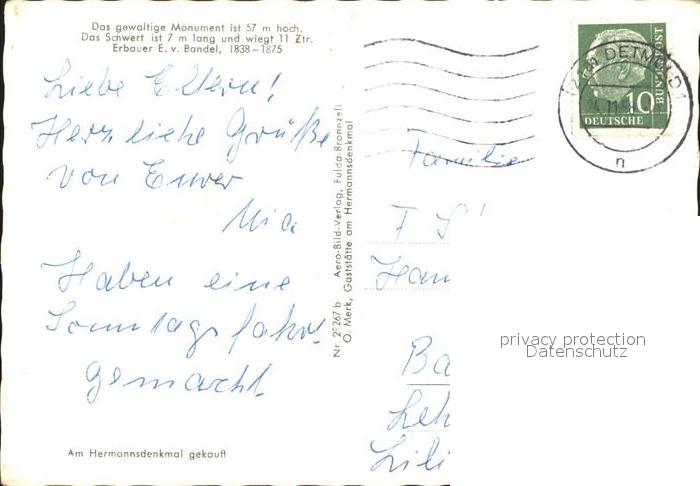 Das gewaltige Monument ist 57 m hoch.
Das Schwert ist 7 m lang und wiegt 11 Ztr.
Erbauer E. v. Bandel, 1838–1875
Liebe Eltern!
Herzliche Grüße
von Eurer
Mia
Haben eine
Sonntagsfahrt
gemacht
Am Hermannsdenkmal gekauft
Nr. 2267 b Aero-Bild-Verlag, Fulda-Bronnzell
O. Merk, Gaststätte am Hermannsdenkmal
DETMOLD
n
10
DEUTSCHE
BUNDESPOST
Familie
privacy protection
Datenschutz